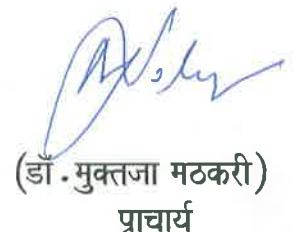 (डॉ.मुक्तजा मठकरी)
प्राचार्य